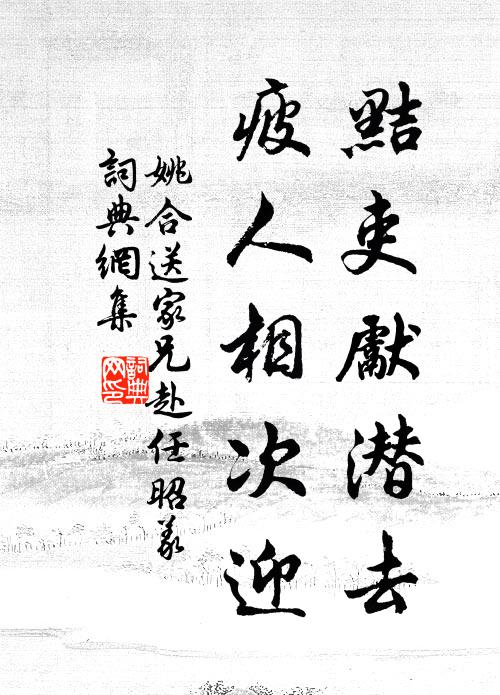 黠吏獻潜去
疲人相次迎
姚合送家兄赴任昭義
詞典網集
詞典
网印